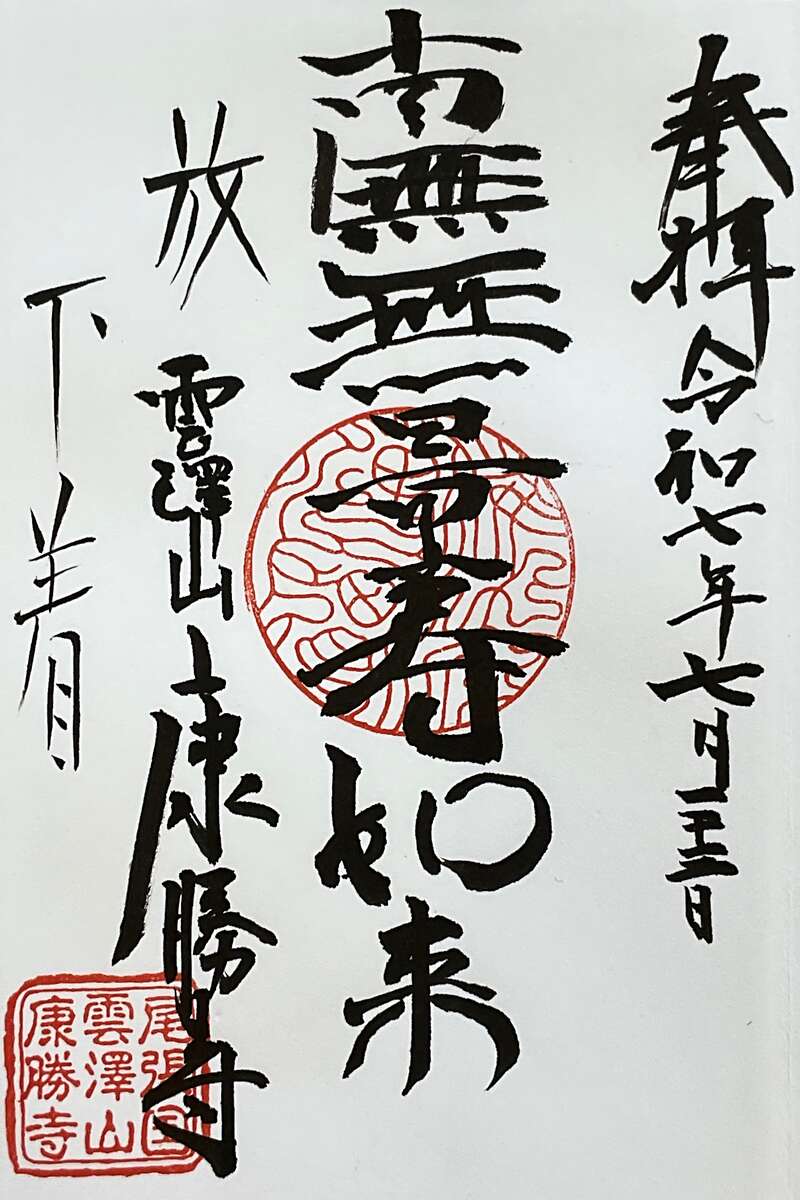 奉拝 令和七年七月二十二日
南無無量寿如来
放
下着
雲澤山 康勝寺
尾張国
雲澤山
康勝寺